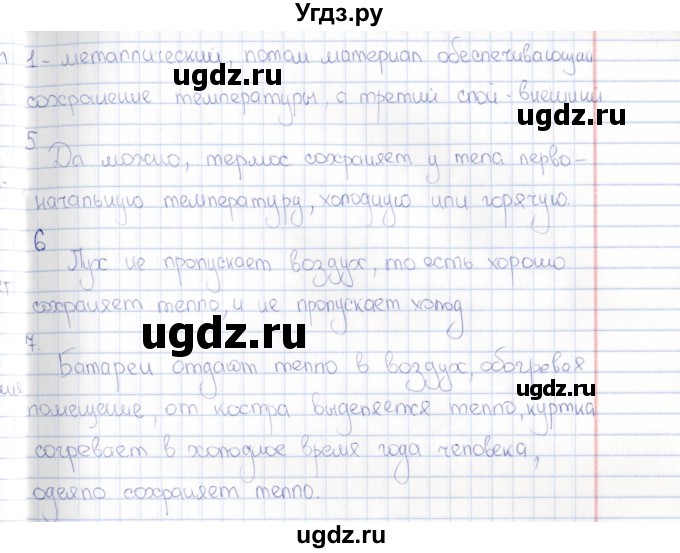 Угдз.ру
1 - металлический, потом материал обеспечивающий
сохранение температуры, а третий слой - внешний
5
Да можно, термос сохраняет у тела перво-
начальную температуру, холодную или горячую.
6
Пух не пропускает воздух, то есть хорошо
сохраняет тепло, и не пропускает холод
7.
Батареи отдают тепло в воздух, обогревая
помещение, от костра выделяется тепло, куртка
согревает в холодное время года человека,
одеяло сохраняет тепло.
ugdz.ru
ugdz.ru
ugdz.ru
ugdz.ru
ugdz.ru
ugdz.ru
ugdz.ru
ugdz.ru